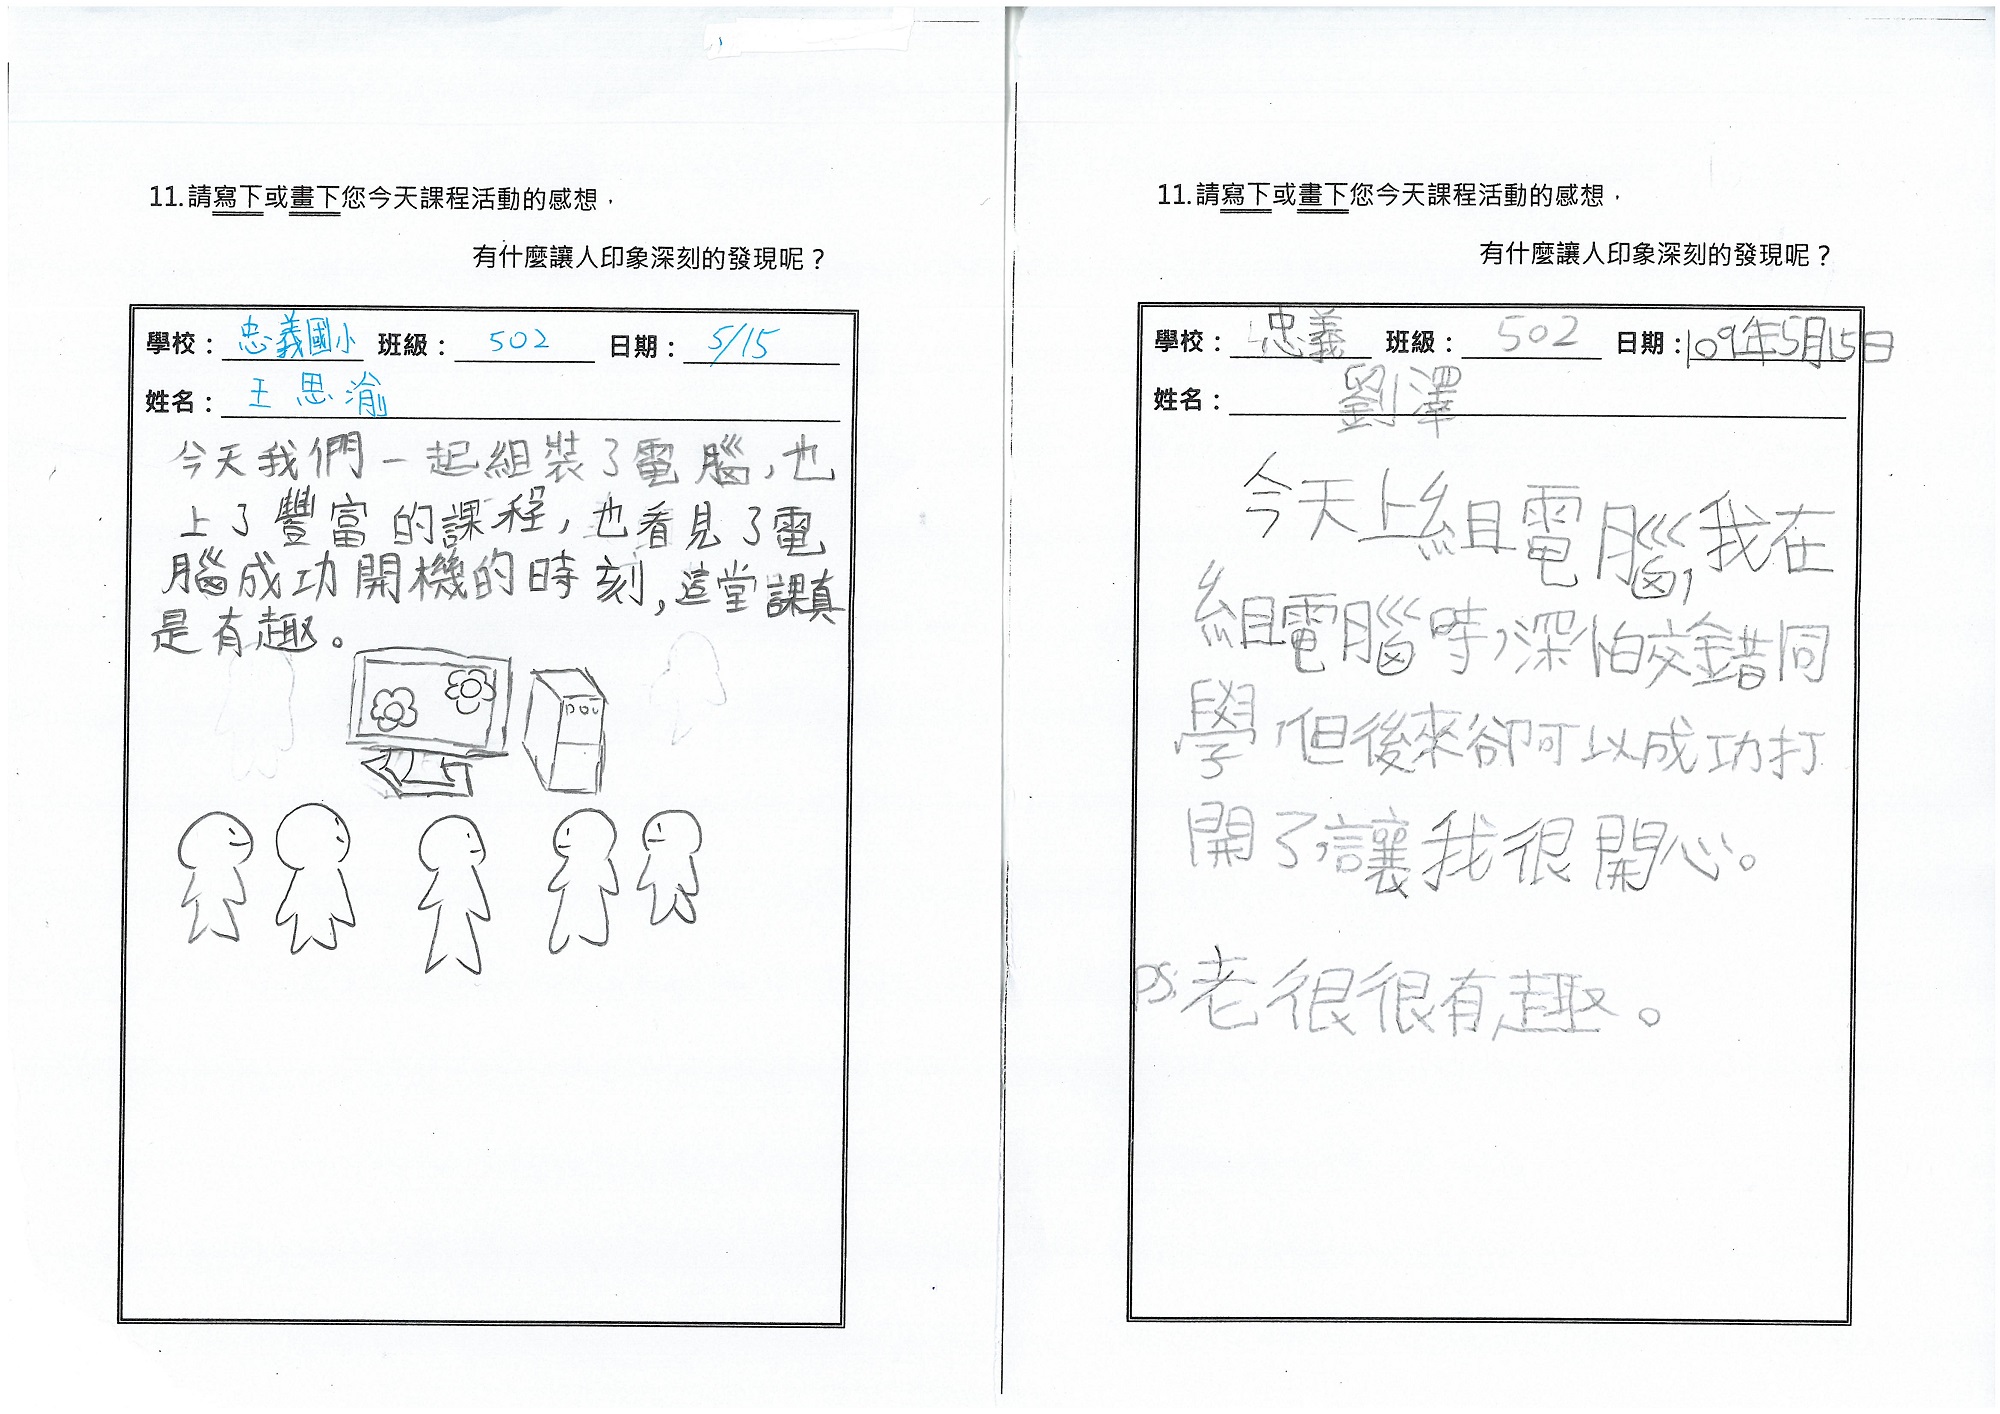 11.請寫下或畫下您今天課程活動的感想，
有什麼讓人印象深刻的發現呢？
學校：忠義國小 班級：502 日期：5/15
姓名：王思渝
今天我們一起組裝了電腦，也
上了豐富的課程，也看見了電
腦成功開機的時刻，這堂課真
是有趣。
11.請寫下或畫下您今天課程活動的感想，
有什麼讓人印象深刻的發現呢？
學校：忠義 班級：502 日期：109年5月15日
姓名：劉澤
今天上組電腦，我在
組電腦時，深怕交錯同
學，但後來卻可以成功打
開了，讓我很開心。
PS:老很很有趣。